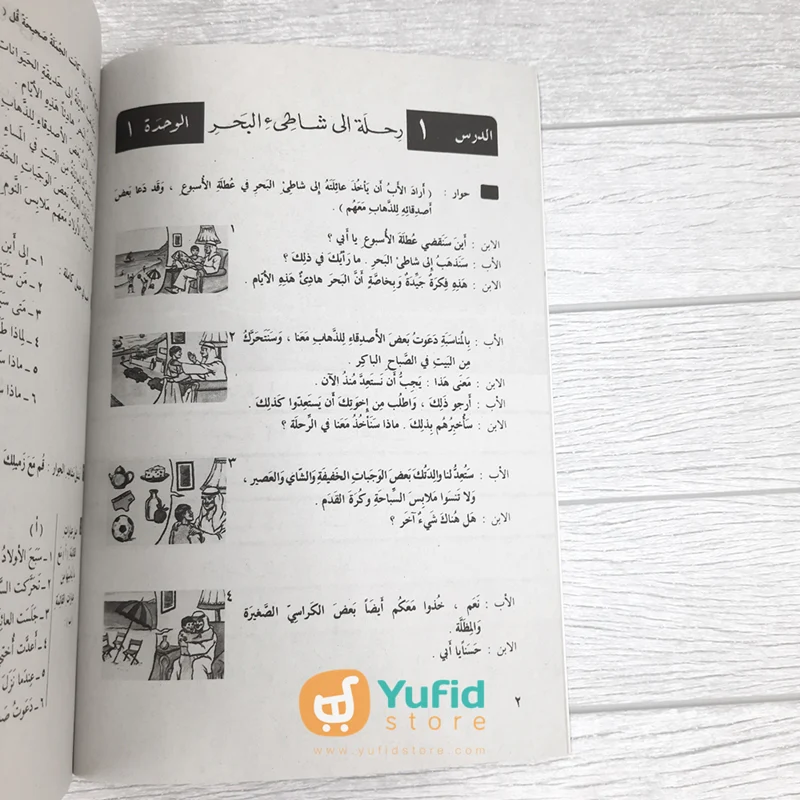 الوحدة ١ رحلة الى شاطىء البحر ١ الدرس
حوار : ( أرادَ الأبُ أن يَأخُذَ عائِلَتَهُ إلى شاطِئِ البَحرِ في عُطلَةِ الأُسبوعِ ، وَقَد دَعا بَعضَ
أصدِقائِهِ لِلذَّهابِ مَعَهُم ) .
١
الابن : أينَ سَنَقضي عُطلَةَ الأُسبوعِ يا أبي ؟
الأب : سَنَذهَبُ إلى شاطِئِ البَحرِ . ما رَأيُكَ في ذلِكَ ؟
الابن : هَذِهِ فِكرَةٌ جَيِّدَةٌ وَبِخاصَّةٍ أنَّ البَحرَ هادِئٌ هَذِهِ الأيّام .
٢
الأب : بِالمُناسَبَةِ دَعَوتُ بَعضَ الأصدِقاءِ لِلذَّهابِ مَعَنا ، وَسَنَتَحَرَّكُ
مِنَ البَيتِ في الصَّباحِ الباكِر .
الابن : مَعنَى هَذا : يَجِبُ أن نَستَعِدَّ مُنذُ الآن .
الأب : أرجو ذَلِكَ ، وَاطلُب مِن إخوَتِكَ أن يَستَعِدّوا كَذلِكَ .
الابن : سَأُخبِرُهُم بِذلِكَ . ماذا سَنَأخُذُ مَعَنا في الرِّحلَة ؟
٣
الأب : سَتُعِدُّ لنا والِدَتُكَ بَعضَ الوَجَباتِ الخَفيفَةِ وَالشّاي وَالعَصير ،
وَلا تَنسَوا مَلابِسَ السِّباحَةِ وَكُرَةَ القَدَم .
الابن : هَل هُناكَ شَيءٌ آخَر ؟
٤
الأب : نَعَم ، خُذوا مَعَكُم أيضاً بَعضَ الكَراسيّ الصَّغيرَة
وَالمِظَلَّة .
الابن : حَسَناً يا أبي .
٢
Yufid
store
www.yufidstore.com
١ - إلى أين
٢ - مَن
٣ - مَتى
٤ - لِماذا
٥ - ماذا
٦ - ماذا
قُم مَعَ زَميلِكَ
( أ )
١ - سَبَحَ الأولادُ
٢ - تَحَرَّكَت
٣ - جَلَسَت
٤ - أعدَّت
٥ - عِندَما
٦ - دَعَوتُ